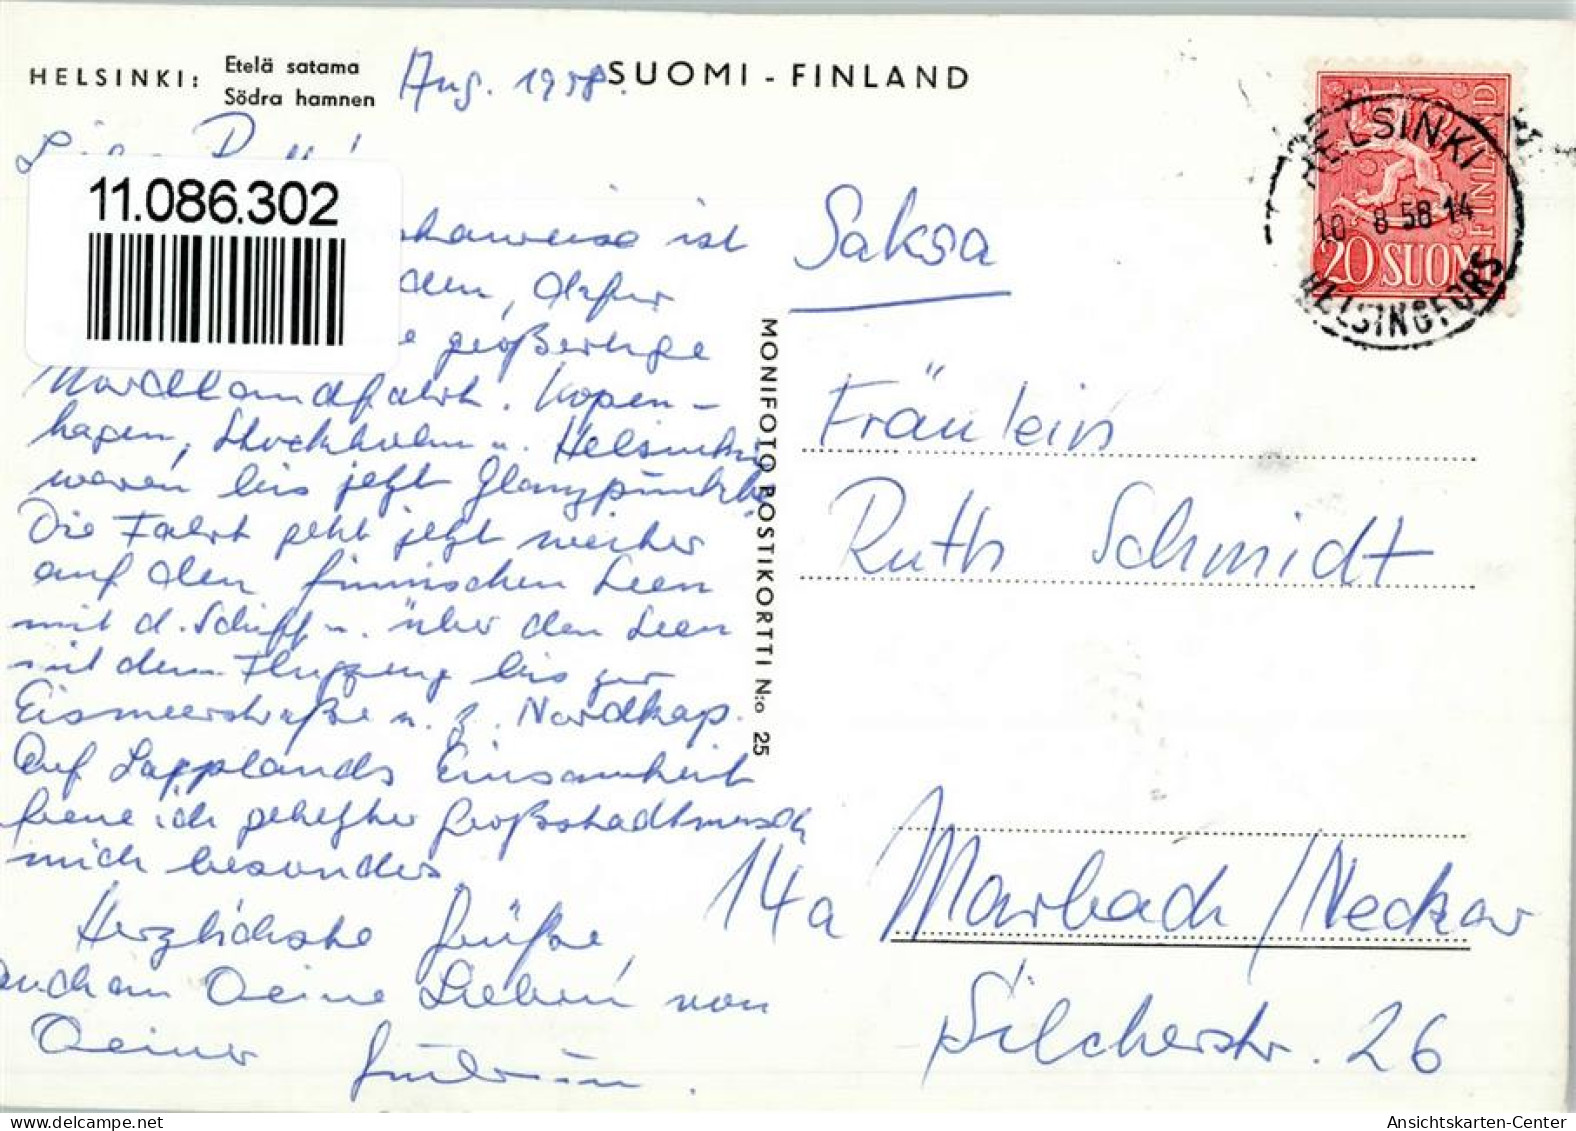 HELSINKI: Etelä satama
Södra hamnen
Aug. 1958.
SUOMI - FINLAND
11.086.302
ist
den, dafür
e großartige
Nordlandfahrt. Kopen-
hagen, Stockholm u. Helsinki
waren bis jetzt Glanzpunkte.
Die Fahrt geht jetzt weiter
auf den finnischen Seen
mit d. Schiff u. über den Seen
mit dem Flugzeug bis zur
Eismeerstraße u. z. Nordkap.
Auf Lapplands Einsamkeit
freue ich gehetzter Großstadtmensch
mich besonders.
Herzlichste Grüße,
auch an Deine Lieben von
Deiner
MONIFOTO POSTIKORTTI N:o 25
HELSINKI
10 8 58 14
HELSINGFORS
20 SUOMI FINLAND
Saksa
Fräulein
Ruth Schmidt
14a Marbach/Neckar
Silcherstr. 26
Ansichtskarten-Center